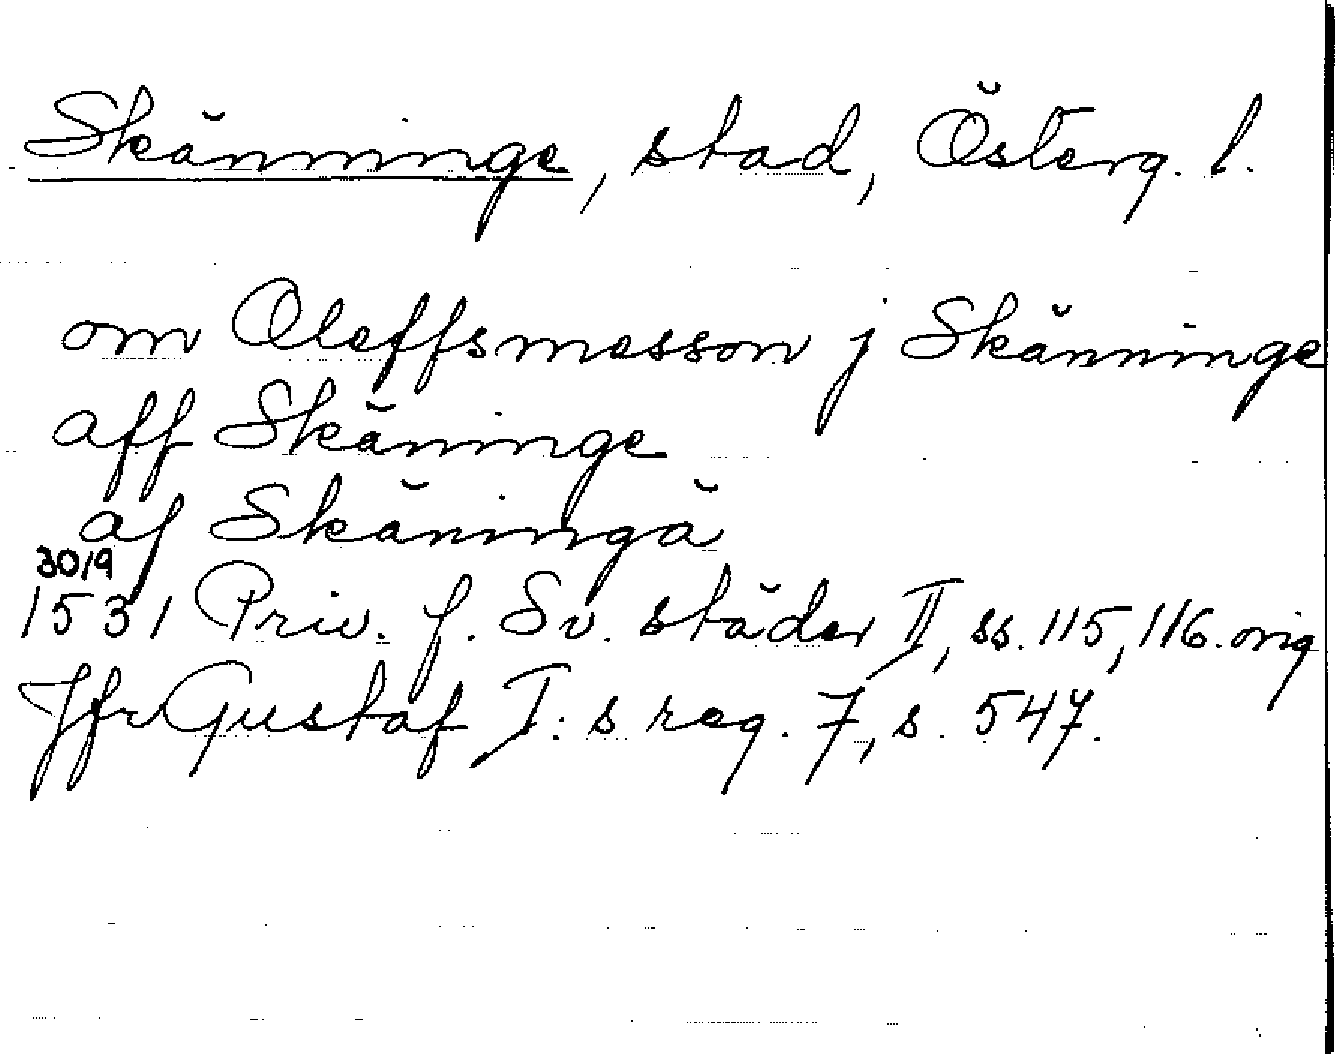 Skänninge, stad, Österg. l.
om Oleffsmesson j Skänninge
aff Skäninge
af Skäningä
30/9
1531 Priv. f. Sv. städer II, ss. 115, 116. orig
Jfr Gustaf I: s reg. 7, s. 547.